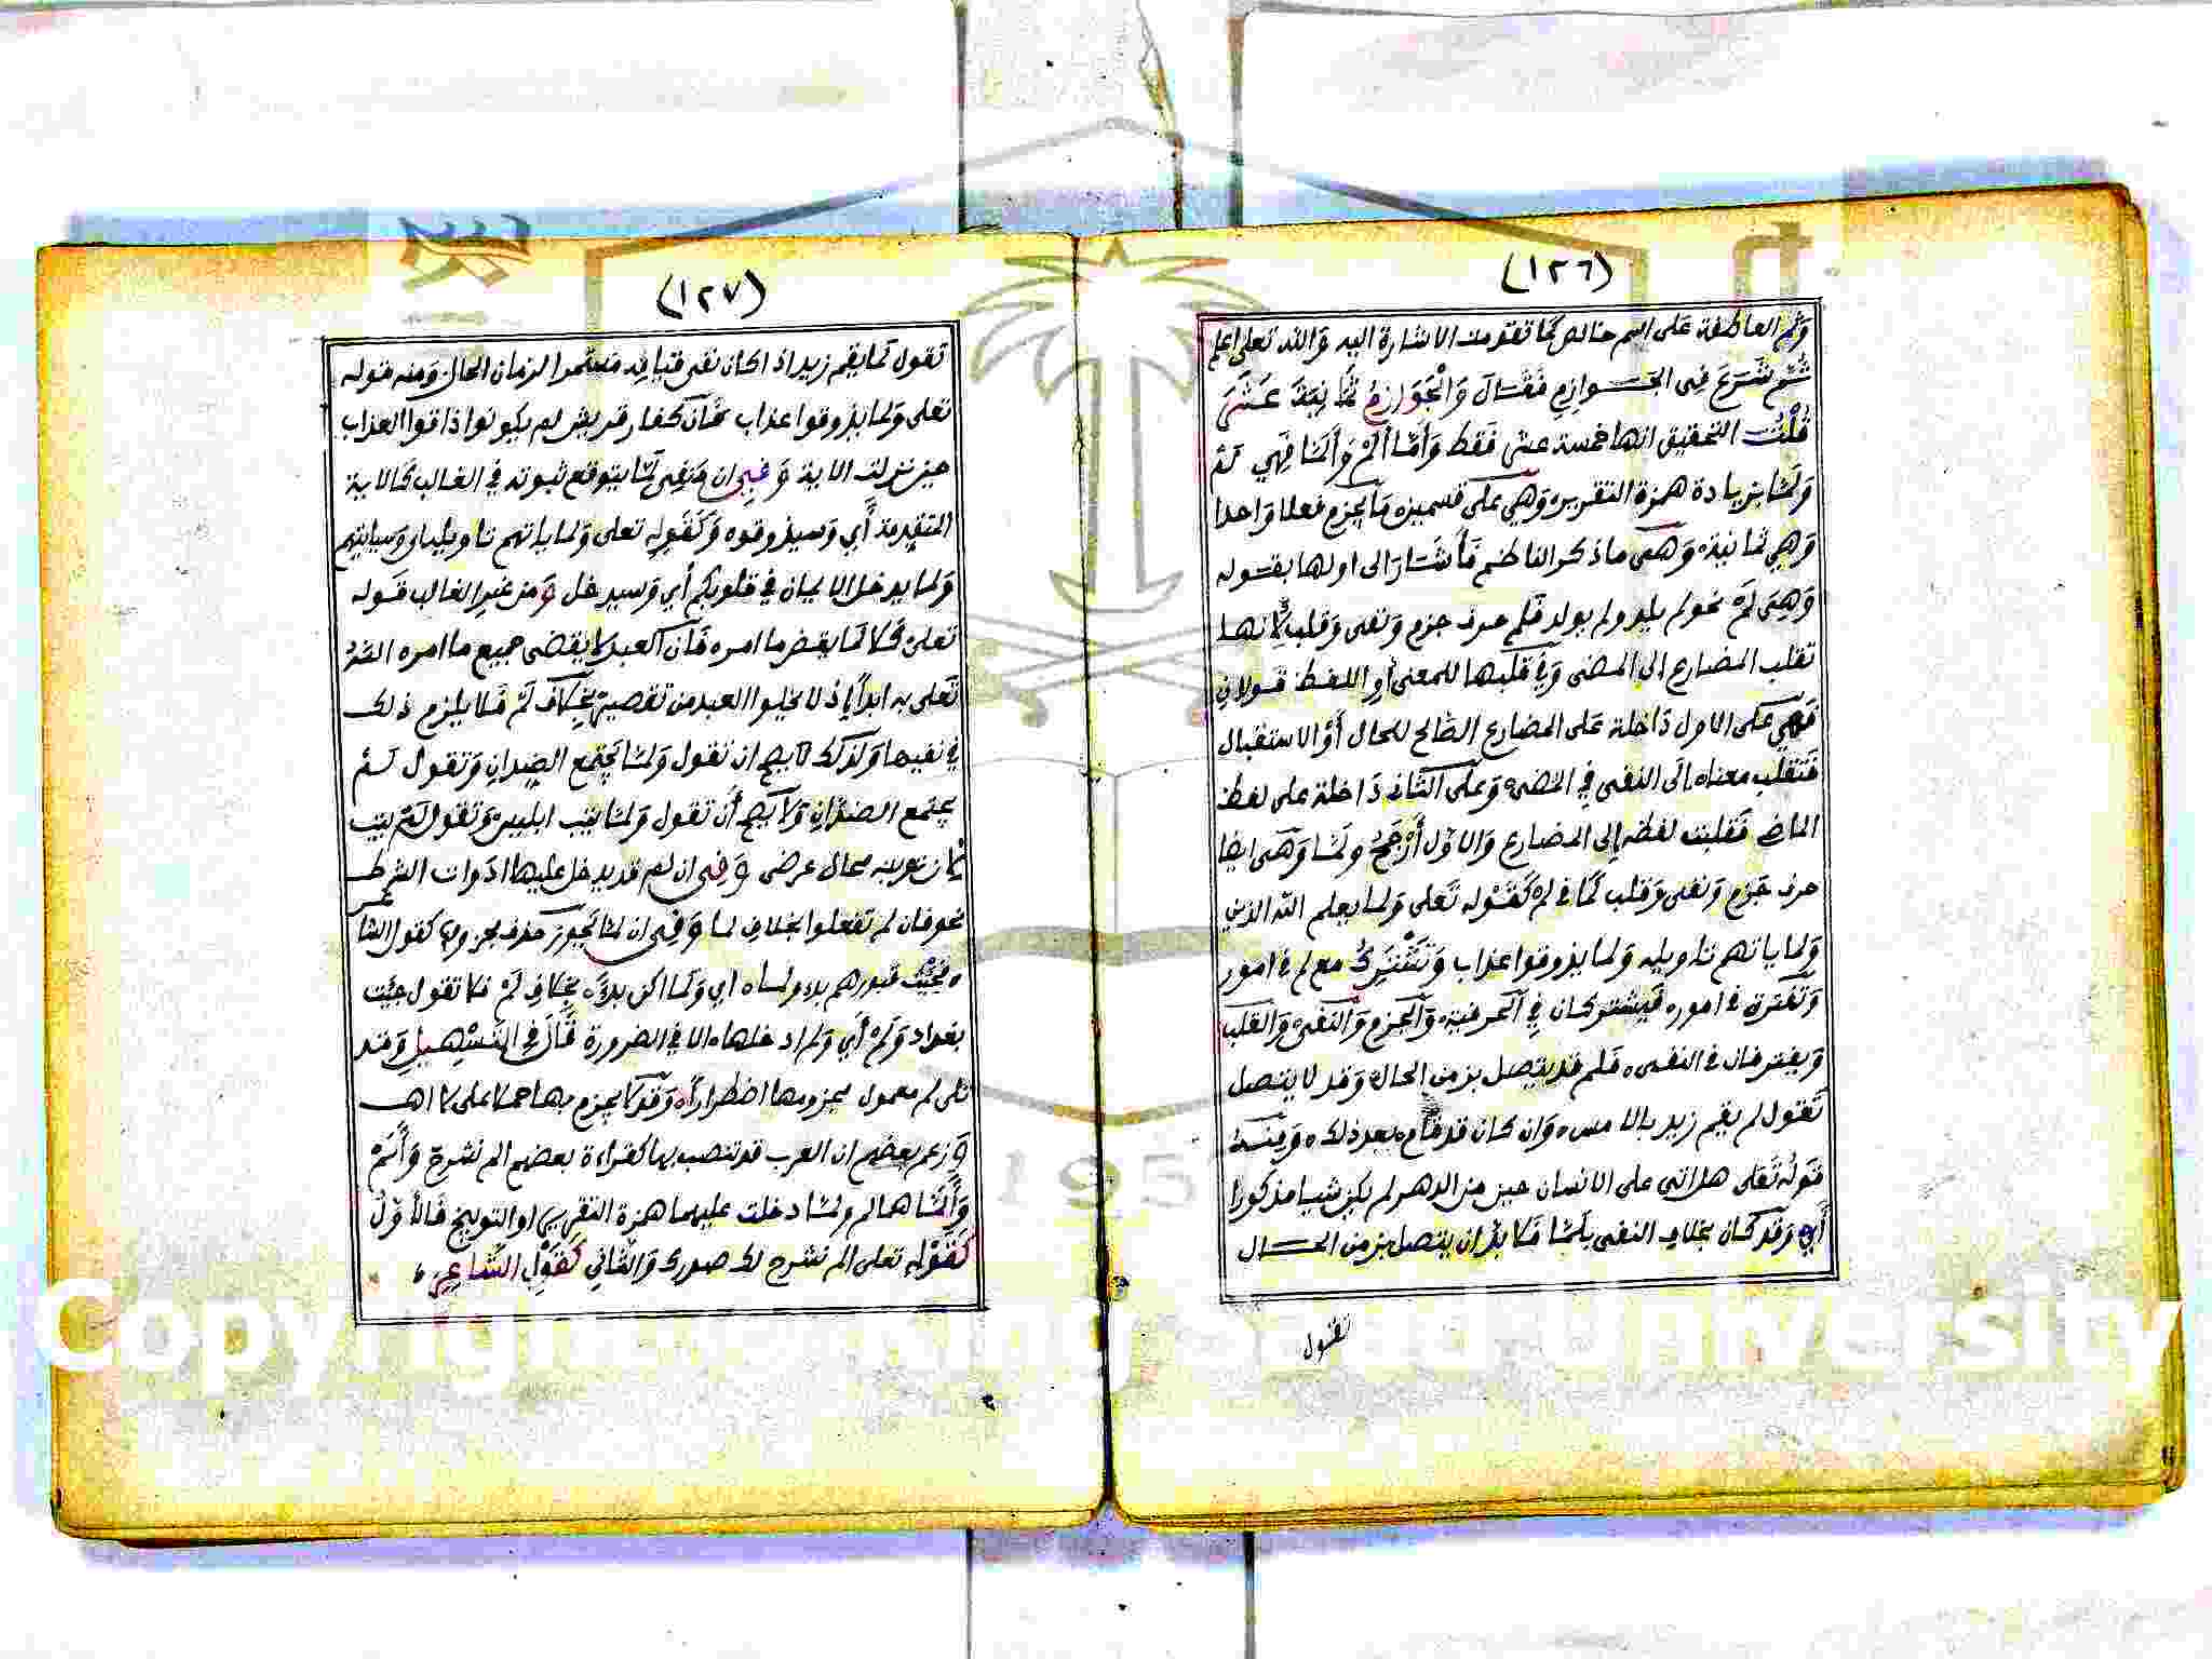 (١٢٦)
وثم العاطفة على اسم خالص كما تقدمت الاشارة اليه والله تعلى اعلم
ثُم شَرَعَ فِى الجَوازِمِ فَقَالَ وَالْجَوَازِمُ ثمَانِيَةَ عَشَرَ
قُلْتُ التحقيق انها خمسة عشر فقط وَأمّا ألَمْ وَألَمّا فهي لم
ولمّا بزيادة همزة التقرير وَهي على قسمين مَا يجزم فعلا واحدا
وَهي ثمانية وَهى ما ذكر الناظم فأشَار الى اولها بقوله
وَهِىَ لَمْ نحو لم يلد ولم يولد فلم حرف جزم وَنفى وَقلب لانها
تقلب المضارع الى المضى وَفي قلبها للمعنى أو اللفظ قولان
فهي على الاول دَاخلة عَلى المضارع الصَّالح للحال أوْ الاستقبال
فتقلب معناه إلى النفى في المضى وَعلى الثانى دَاخلة على لفظ
الماضى فقلبت لفظه إلى المضارع وَالاوّل أرْجَحُ ولَمّا وَهى ايضا
حرف جَزم وَنفى وَقلب كما فى لم كَقَوْله تَعلى وَلما يعلم الله الذين
وَلما ياتهم تاويله وَلما يذوقوا عذاب وَتَشْتَرِكُ مع لم فى امور
وَتفترق فى امور فيشتركان في الحرفية وَالجزم وَالنفى وَالقلب
وَيفترقان فى النفى فلم قد يتصل بزمن الحال وَقد لا يتصل
تَقول لم يقم زيد بالامس وَان كان قد قام بعد ذلك وَمنه
قوله تَعلى هل اتى على الانسان حين من الدهر لم يكن شيا مذكورا
أي وَقد كان بخلاف النفى بلمّا فلا بدّ ان يتصل بزمن الحال
تقول
(١٢٧)
تقول لما يقم زيد اذا كان نفى قيامه مستمرا لزمان الحال وَمنه قوله
تعلى وَلما يذوقوا عذاب فان كفار قريش لم يكونوا ذاقوا العذاب
حين نزلت الاية وَفِى ان مَنفى لمّا يتوقع ثبوته في الغالب كالاية
المتقدمة أي وَسيذوقوه وَكَقوله تعلى وَلما ياتهم تاويله اي وَسياتيهم
وَلما يدخل الايمان في قلوبكم أي وَسيدخل وَمن غير الغالب قوله
تعلى كلا لما يقض ما امره فان العبد لا يقضى جميع ما امره الله
تَعلى به ابداً إذ لا يخلوا العبد من تقصير بخلاف لَمْ فلا يلزم ذلك
في نفيها وَلذلك لا يصح ان تقول وَلمّا يَجتمع الضدانِ وَتقول لم
يجتمع الضدَّانِ وَلا يصح أَن تقول وَلمّا يتب ابليس وَتقول لَمْ يتب
لان توبته محال عرضى وَفِى ان لم قد يدخل عليها ادَوات الشرط
نحو فان لم تفعلوا بخلاف لما وَفِى ان لمّا يَجوز حذف مجزومها كقول الشاعر
فجِئْت قبورهم بدءا ولما اي وَلما اكن بدءًا بخلاف لَمْ فلا تقول جئت
بغداد وَلَمْ أي وَلم ادخلها الا في الضرورة قَالَ في التَسْهِيلِ وَقد
تلى لم معمول مجزومها اضطراراً وَقد لا يجزم بها حملا على لا اهـ
وَزعم بعضهم ان العرب قد تنصب بها كقراءة بعضهم الم نشرح وَألَمْ
وَألَمَّا هما لم ولمّا دخلت عليهما همزة التقرير او التوبيخ فالأوّل
كَقَوْلِهِ تعلى الم نشرح لك صدرك وَالثّاني كَقَوْلِ الشّاعِرِ
Copyright © King Saud University
195